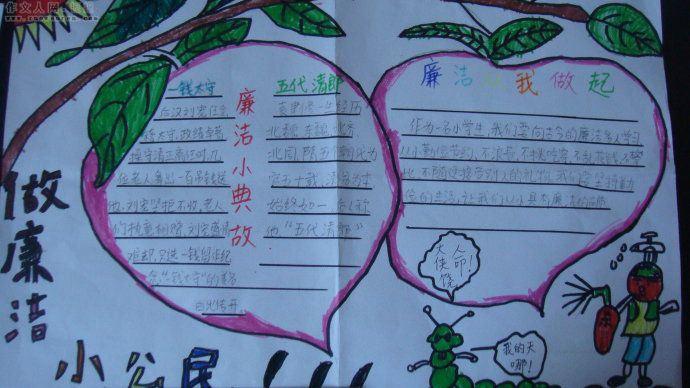 作文人网
一钱太守
后汉刘宠任会
稽太守,政绩卓著
操守清正离任时,几
位老人拿出一百串钱送
他,刘宠坚拒不收,老人
们执意相赠,刘宠盛情
难却,只选一钱留作纪
念"一钱太守"的美名
由此传开。
廉洁小典故
五代清郎
袁聿修一生经历
北魏、东魏、北齐、
北周、隋五个朝代为
官五十载,清名为本
始终如一,后人称
他"五代清郎"
廉洁从我做起
作为一名小学生,我们要向古今的廉洁名人学习
从小勤俭节约、不浪费、不挑吃穿、不乱花钱、不攀
比、不随便接受别人的礼物,我们应坚持勤
俭的生活,让我们从小具有廉洁的品质
大人
大侠饶命!
我的天哪!
做廉洁
小公民!!!